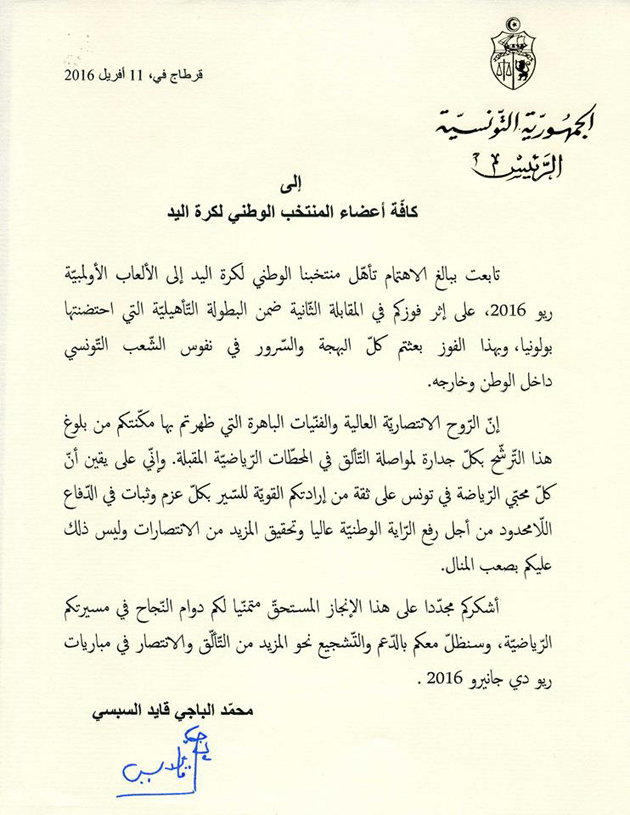 قرطاج في، 11 أفريل 2016
الجمهورية التونسية
الرئيس
إلى
كافّة أعضاء المنتخب الوطني لكرة اليد
تابعت ببالغ الاهتمام تأهّل منتخبنا الوطني لكرة اليد إلى الألعاب الأولمبيّة
ريو 2016، على إثر فوزكم في المقابلة الثّانية ضمن البطولة التّأهيليّة التي احتضنتها
بولونيا، وبهذا الفوز بعثتم كلّ البهجة والسّرور في نفوس الشّعب التّونسي
داخل الوطن وخارجه.
إنّ الرّوح الانتصاريّة العالية والفنّيات الباهرة التي ظهرتم بها مكّنتكم من بلوغ
هذا التّرشّح بكلّ جدارة لمواصلة التّألق في المحطّات الرّياضيّة المقبلة. وإنّي على يقين أنّ
كلّ محبّي الرّياضة في تونس على ثقة من إرادتكم القويّة للسّير بكلّ عزم وثبات في الدّفاع
اللّامحدود من أجل رفع الرّاية الوطنيّة عاليا وتحقيق المزيد من الانتصارات وليس ذلك
عليكم بصعب المنال.
أشكركم مجدّدا على هذا الإنجاز المستحقّ متمنّيا لكم دوام النّجاح في مسيرتكم
الرّياضيّة، وسنظلّ معكم بالدّعم والتّشجيع نحو المزيد من التّألّق والانتصار في مباريات
ريو دي جانيرو 2016 .
محمّد الباجي قايد السبسي